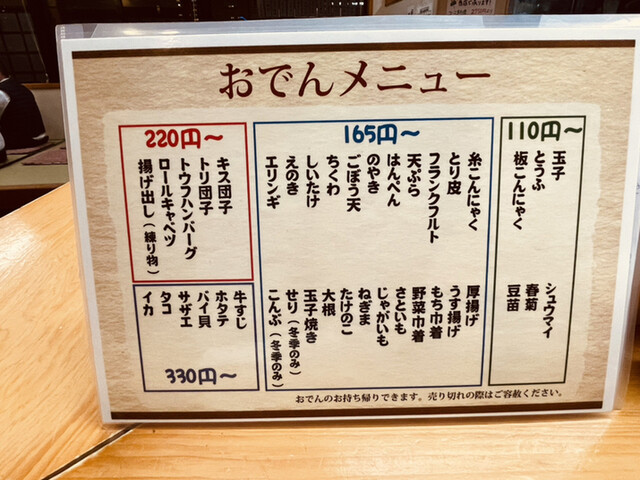 おでんメニュー
110円～
玉子
とうふ
板こんにゃく
シュウマイ
春菊
豆苗
165円～
糸こんにゃく
とり皮
フランクフルト
天ぷら
はんぺん
のやき
ごぼう天
ちくわ
しいたけ
えのき
エリンギ
厚揚げ
うす揚げ
もち巾着
野菜巾着
さといも
じゃがいも
ねぎま
たけのこ
大根
玉子焼き
せり（冬季のみ）
こんぶ（冬季のみ）
220円～
キス団子
トリ団子
トウフハンバーグ
ロールキャベツ
揚げ出し（練り物）
牛すじ
ホタテ
バイ貝
サザエ
タコ
イカ
330円～
おでんのお持ち帰りできます。売り切れの際はご容赦ください。